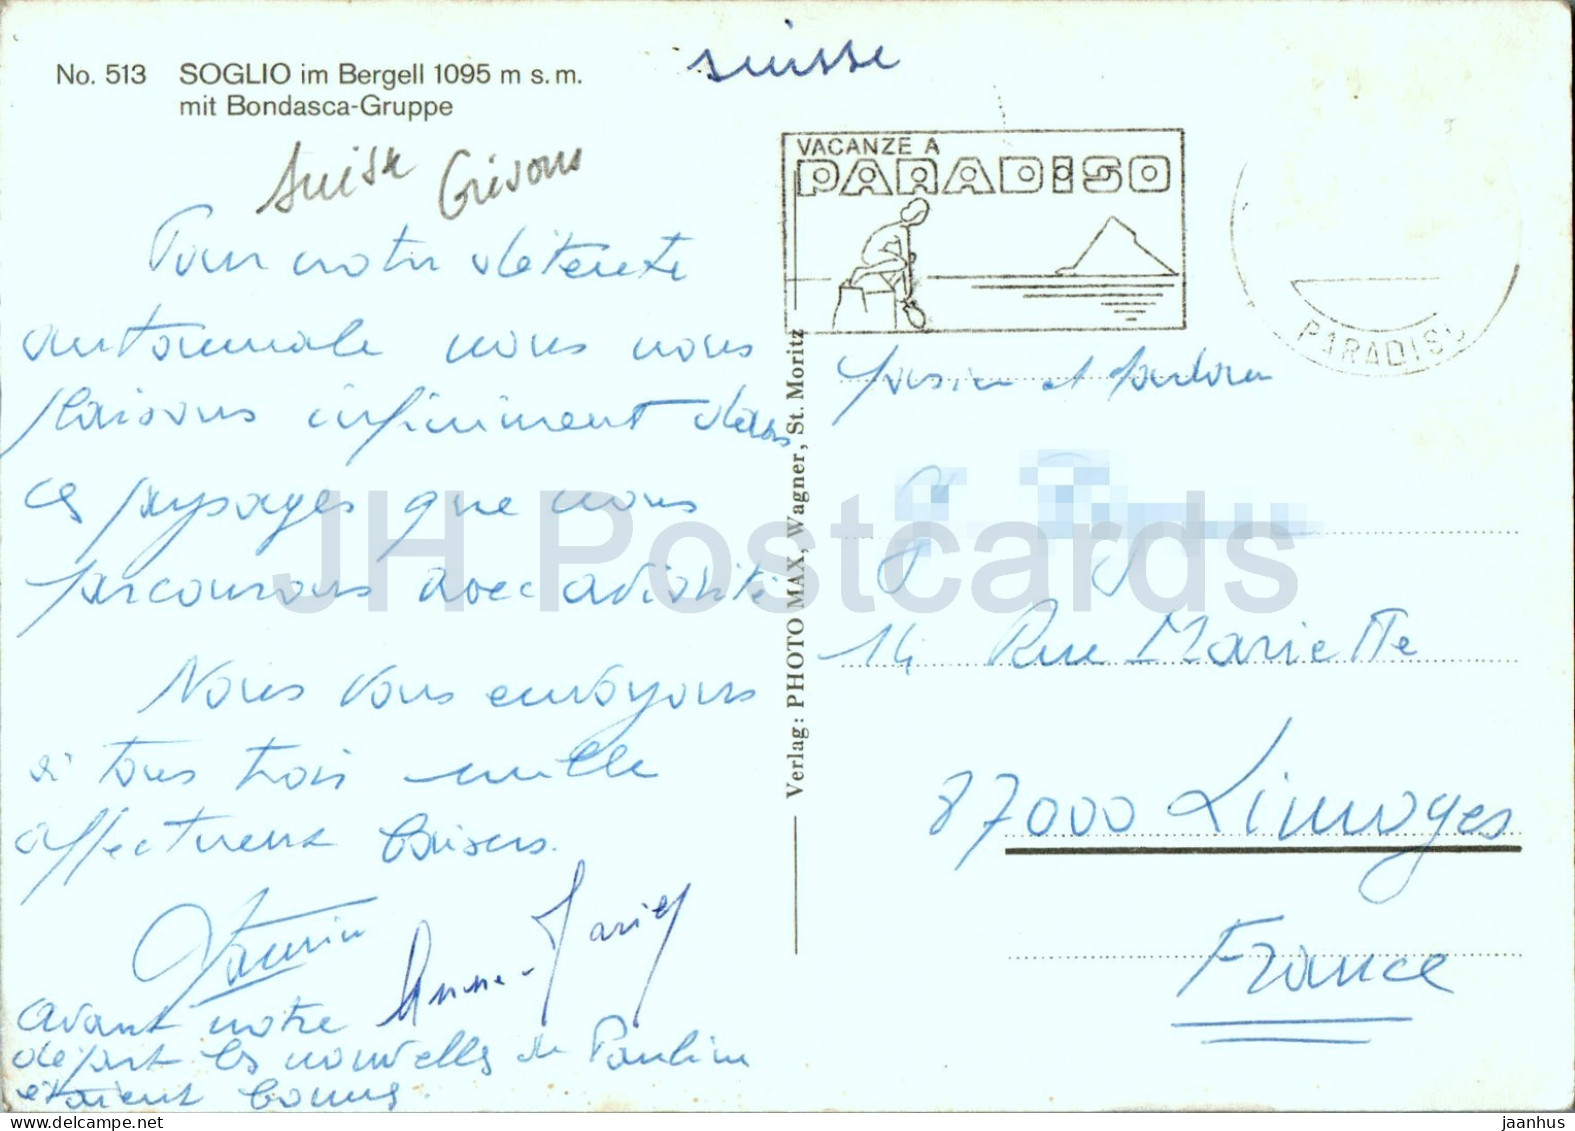 No. 513 SOGLIO im Bergell 1095 m s. m.
mit Bondasca-Gruppe
Suisse
Suisse Grisons
Pour notre détente
automnale nous nous
plaisons infiniment dans
ces paysages que nous
parcourons avec avidité
Nous vous envoyons
à tous trois mille
affectueux baisers.
Anne-Marie
avant notre
départ les nouvelles de Pauline
étaient bonnes.
Verlag: PHOTO MAX, Wagner, St. Moritz
VACANZE A
PARADISO
PARADISO
14 Rue Mariette
87000 Limoges
France
JH Postcards
jaanhus @ delcampe.net